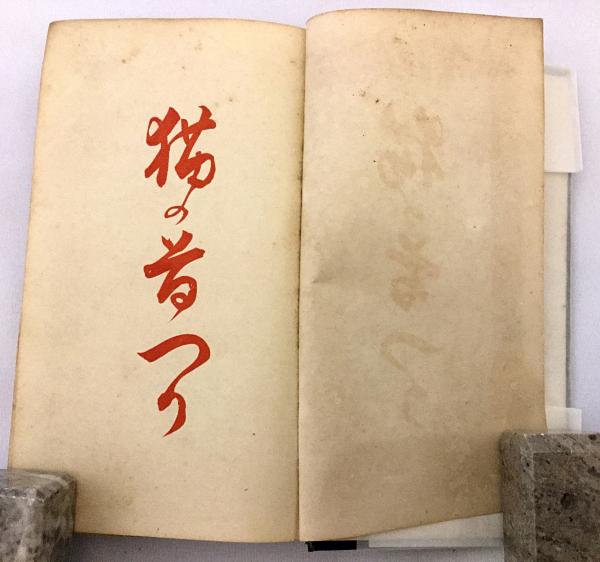 猫の首つり